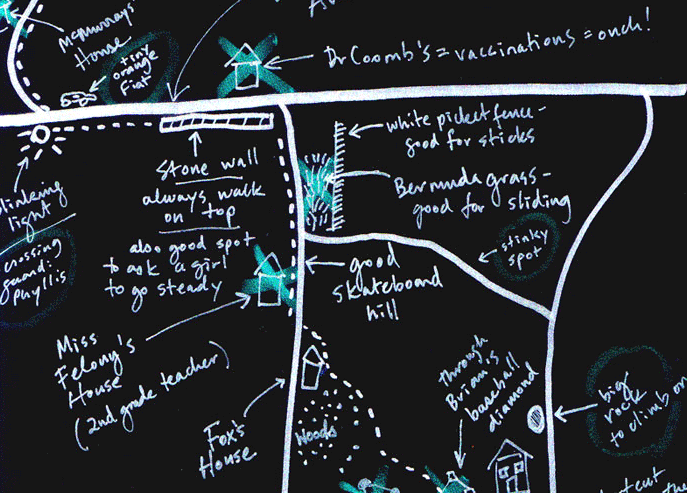 McMurray's
House
tiny
orange
Fiat
Dr Coomb's = vaccinations = ouch!
white picket fence -
good for sticks
Stone wall
always walk
on top
also good spot
to ask a girl
to go steady
Bermuda grass -
good for sliding
blinking
light
crossing
guard:
phyllis
stinky
spot
good
skateboard
hill
Miss
Felony's
House
(2nd grade teacher)
Fox's
House
Woods
Through
Brian's
baseball
diamond
big
rock
to climb on